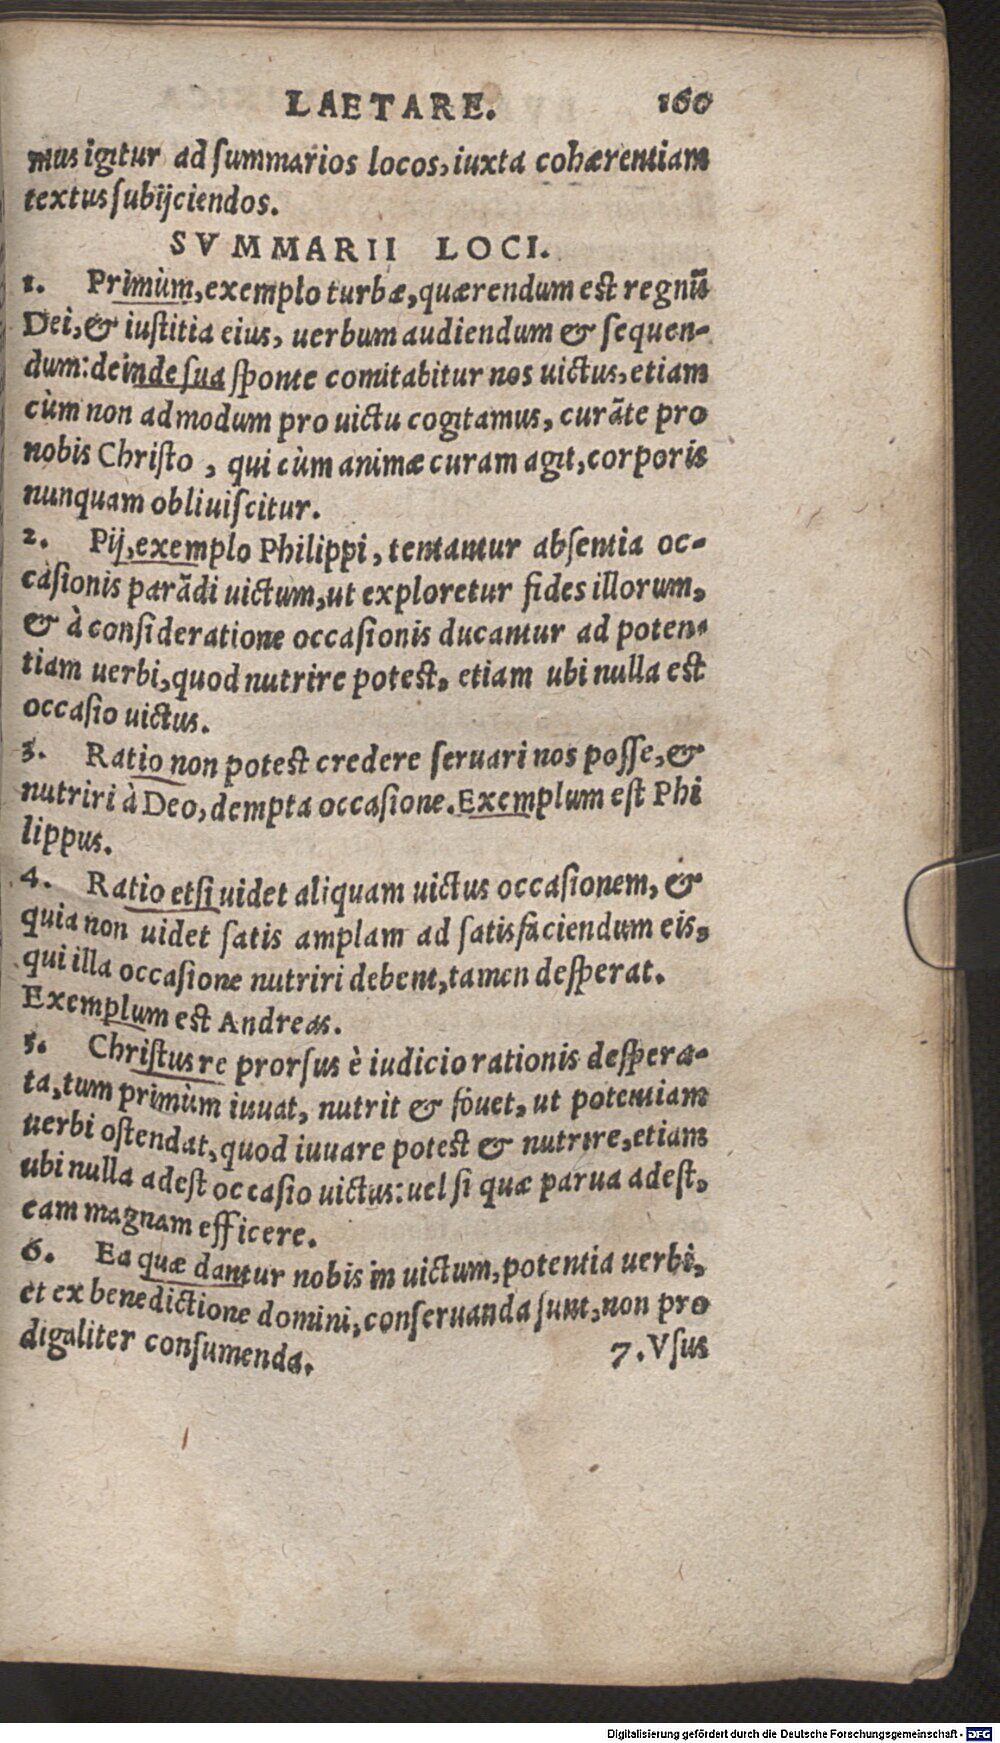 LAETARE. 160
mus igitur ad summarios locos, iuxta cohærentiam
textus subijciendos.
SVMMARII LOCI.
1. Primùm, exemplo turbæ, quærendum est regnū
Dei, & iustitia eius, uerbum audiendum & sequen-
dum: deinde sua sponte comitabitur nos uictus, etiam
cùm non admodum pro uictu cogitamus, curāte pro
nobis Christo, qui cùm animæ curam agit, corporis
nunquam obliuiscitur.
2. Pij, exemplo Philippi, tentantur absentia oc-
casionis parādi uictum, ut exploretur fides illorum,
& à consideratione occasionis ducantur ad poten-
tiam uerbi, quod nutrire potest, etiam ubi nulla est
occasio uictus.
3. Ratio non potest credere seruari nos posse, &
nutriri à Deo, dempta occasione. Exemplum est Phi
lippus.
4. Ratio etsi uidet aliquam uictus occasionem, &
quia non uidet satis amplam ad satisfaciendum eis,
qui illa occasione nutriri debent, tamen desperat.
Exemplum est Andreas.
5. Christus re prorsus è iudicio rationis despera-
ta, tum primùm iuuat, nutrit & fouet, ut potentiam
uerbi ostendat, quod iuuare potest & nutrire, etiam
ubi nulla adest occasio uictus: uel si quæ parua adest,
eam magnam efficere.
6. Ea quæ dantur nobis in uictum, potentia uerbi,
et ex benedictione domini, conseruanda sunt, non pro
digaliter consumenda. 7. Vsus
Digitalisierung gefördert durch die Deutsche Forschungsgemeinschaft - DFG